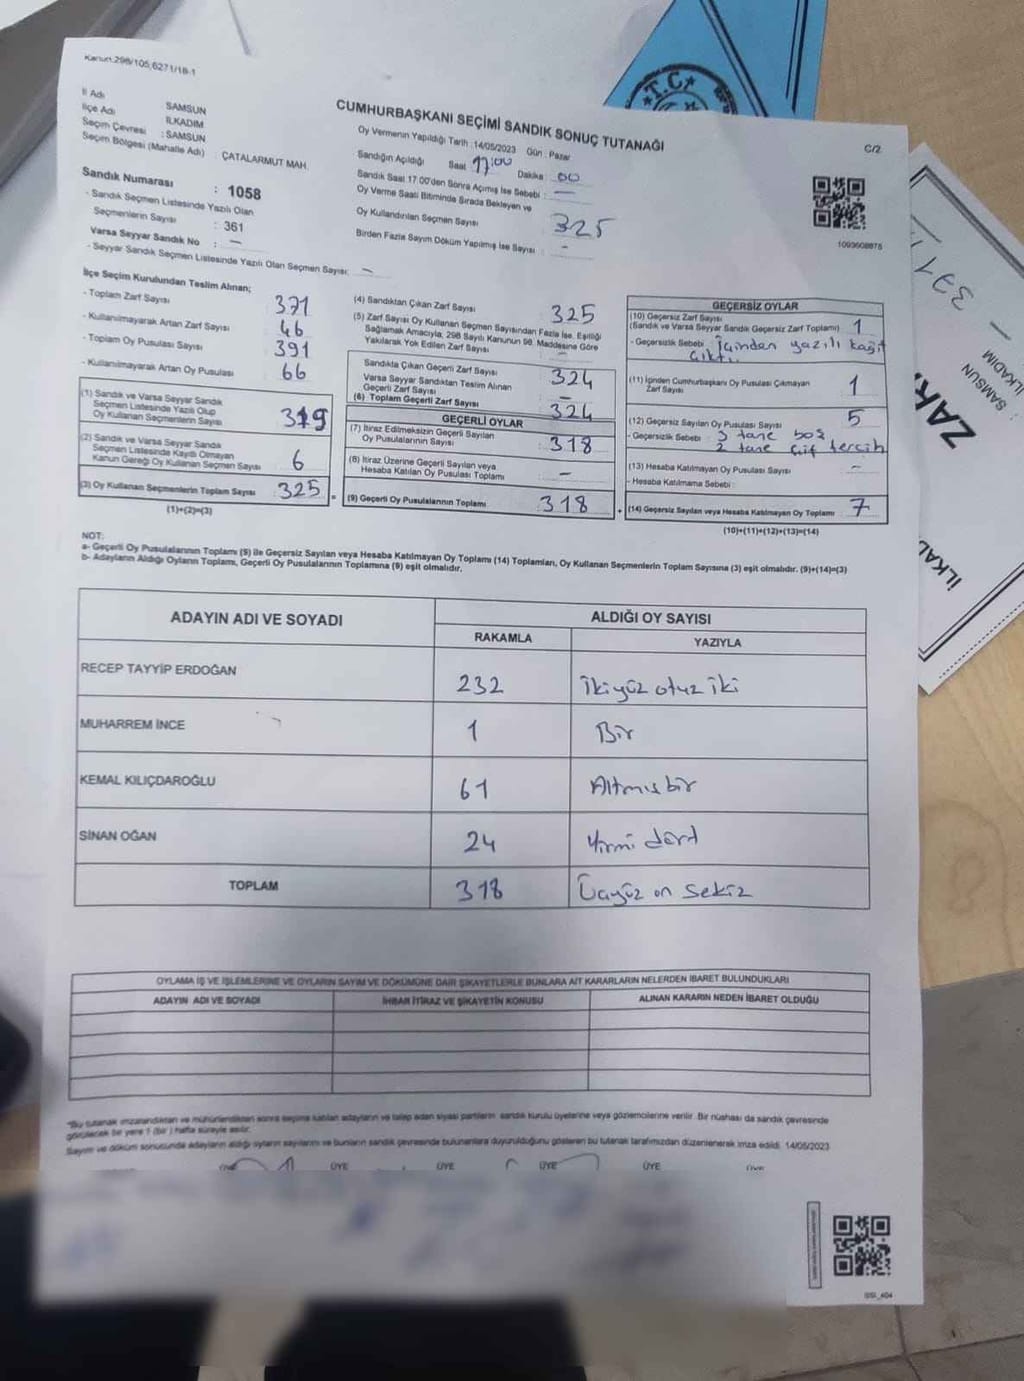 Kanun:298/105,6271/18-1
İl Adı SAMSUN
İlçe Adı İLKADIM
Seçim Çevresi : SAMSUN
Seçim Bölgesi (Mahalle Adı) : ÇATALARMUT MAH.
Sandık Numarası : 1058
- Sandık Seçmen Listesinde Yazılı Olan
Seçmenlerin Sayısı : 361
Varsa Seyyar Sandık No : —
- Seyyar Sandık Seçmen Listesinde Yazılı Olan Seçmen Sayısı: —
CUMHURBAŞKANI SEÇİMİ SANDIK SONUÇ TUTANAĞI
C/2
Oy Vermenin Yapıldığı Tarih :14/05/2023 Gün : Pazar
Sandığın Açıldığı Saat 17:00 Dakika : 00
Sandık Saat 17.00'den Sonra Açımış İse Sebebi : —
Oy Verme Saati Bitiminde Sırada Bekleyen ve
Oy Kullandırılan Seçmen Sayısı 325
Birden Fazla Sayım Döküm Yapılmış İse Sayısı : -
1093608878
İlçe Seçim Kurulundan Teslim Alınan;
- Toplam Zarf Sayısı 371
- Kullanılmayarak Artan Zarf Sayısı 46
- Toplam Oy Pusulası Sayısı 391
- Kullanılmayarak Artan Oy Pusulası 66
(1) Sandık ve Varsa Seyyar Sandık
Seçmen Listesinde Yazılı Olup
Oy Kullanan Seçmenlerin Sayısı 319
(2) Sandık ve Varsa Seyyar Sandık
Seçmen Listesinde Kayıtlı Olmayan
Kanun Gereği Oy Kullanan Seçmen Sayısı 6
(3) Oy Kullanan Seçmenlerin Toplam Sayısı 325
(1)+(2)=(3)
(4) Sandıktan Çıkan Zarf Sayısı 325
(5) Zarf Sayısı Oy Kullanan Seçmen Sayısından Fazla İse, Eşitliği
Sağlamak Amacıyla, 298 Sayılı Kanunun 98. Maddesine Göre
Yakılarak Yok Edilen Zarf Sayısı —
Sandıkta Çıkan Geçerli Zarf Sayısı 324
Varsa Seyyar Sandıktan Teslim Alınan
Geçerli Zarf Sayısı —
(6) Toplam Geçerli Zarf Sayısı 324
GEÇERLİ OYLAR
(7) İtiraz Edilmeksizin Geçerli Sayılan
Oy Pusulalarının Sayısı : 318
(8) İtiraz Üzerine Geçerli Sayılan veya
Hesaba Katılan Oy Pusulası Toplamı : —
(9) Geçerli Oy Pusulalarının Toplamı 318
GEÇERSİZ OYLAR
(10) Geçersiz Zarf Sayısı
(Sandık ve Varsa Seyyar Sandık Geçersiz Zarf Toplamı) 1
- Geçersizlik Sebebi : İçinden yazılı kağıt
çıktı.
(11) İçinden Cumhurbaşkanı Oy Pusulası Çıkmayan
Zarf Sayısı 1
(12) Geçersiz Sayılan Oy Pusulası Sayısı 5
- Geçersizlik Sebebi : 3 tane boş
2 tane çift tercih
(13) Hesaba Katılmayan Oy Pusulası Sayısı -
- Hesaba Katılmama Sebebi :
(14) Geçersiz Sayılan veya Hesaba Katılmayan Oy Toplamı : 7
(10)+(11)+(12)+(13)=(14)
NOT:
a- Geçerli Oy Pusulalarının Toplamı (9) ile Geçersiz Sayılan veya Hesaba Katılmayan Oy Toplamı (14) Toplamları, Oy Kullanan Seçmenlerin Toplam Sayısına (3) eşit olmalıdır. (9)+(14)=(3)
b- Adayların Aldığı Oyların Toplamı, Geçerli Oy Pusulalarının Toplamına (9) eşit olmalıdır.
ADAYIN ADI VE SOYADI
ALDIĞI OY SAYISI
RAKAMLA YAZIYLA
RECEP TAYYİP ERDOĞAN 232 İkiyüz otuz iki
MUHARREM İNCE 1 Bir
KEMAL KILIÇDAROĞLU 61 Altmış bir
SİNAN OĞAN 24 Yirmi dört
TOPLAM 318 Üçyüz on sekiz
OYLAMA İŞ VE İŞLEMLERİNE VE OYLARIN SAYIM VE DÖKÜMÜNE DAİR ŞİKAYETLERLE BUNLARA AİT KARARLARIN NELERDEN İBARET BULUNDUKLARI
ADAYIN ADI VE SOYADI İHBAR İTİRAZ VE ŞİKAYETİN KONUSU ALINAN KARARIN NEDEN İBARET OLDUĞU
"Bu tutanak imzalandıktan ve mühürlendikten sonra seçime katılan adayların ve talep eden siyasi partilerin sandık kurulu üyelerine veya gözlemcilerine verilir. Bir nüshası da sandık çevresinde
görülecek bir yere 1 (bir) hafta süreyle asılır.
Sayım ve döküm sonucunda adayların aldığı oyların sayılarını ve bunların sandık çevresinde bulunanlara duyurulduğunu gösteren bu tutanak tarafımızdan düzenlenerek imza edildi. 14/05/2023
ÜYE ÜYE ÜYE ÜYE
SSI_404
T.C.
371
SAMSUN
İLKADIM
ZAR
İLKAD